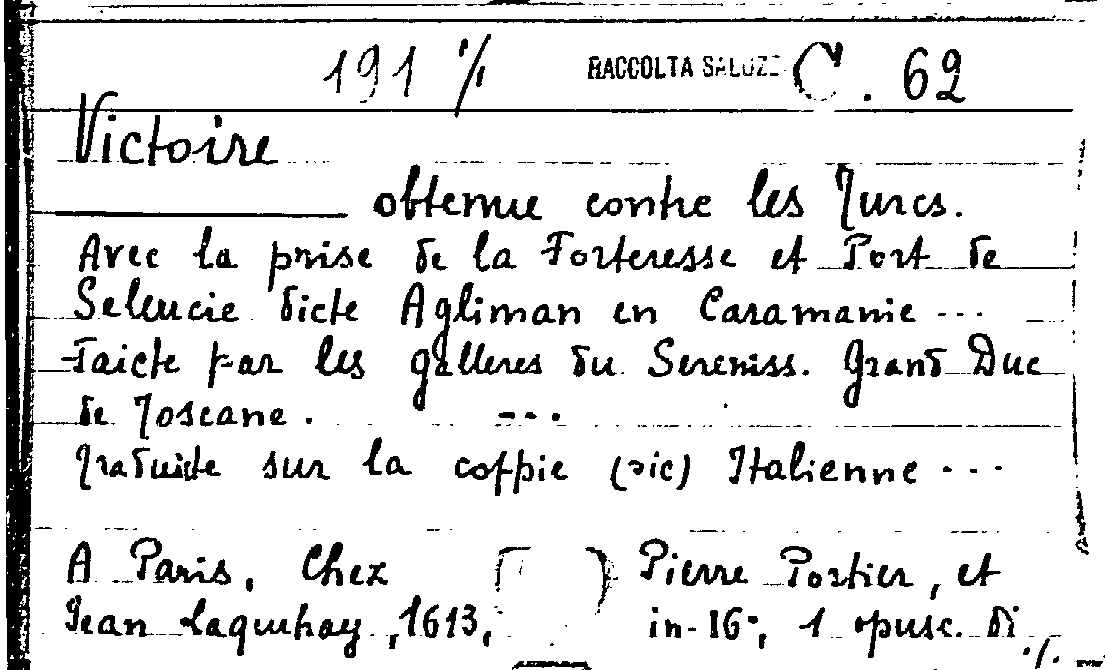 191 % RACCOLTA SALUZZ C. 62
Victoire
obtenue contre les Turcs.
Avec la prise de la Forteresse et Port de
Seleucie dicte Agliman en Caramanie ...
Faicte par les galleres du Sereniss. Grand Duc
de Toscane. ...
Traduicte sur la coppie (sic) Italienne ...
A Paris, Chez Pierre Portier, et
Jean Laquehay, 1613, in-16°, 1 opusc. di
./.